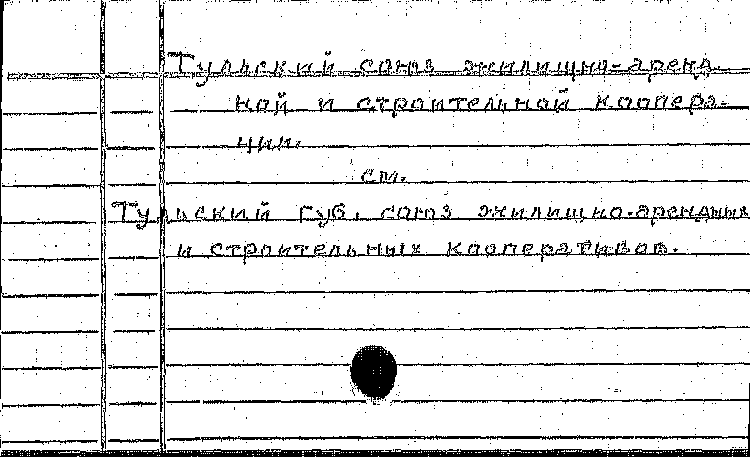 Тульский союз жилищно-аренд-
ной и строительной коопера-
ции.
см.
Тульский губ. союз жилищно-арендных
и строительных кооперативов.